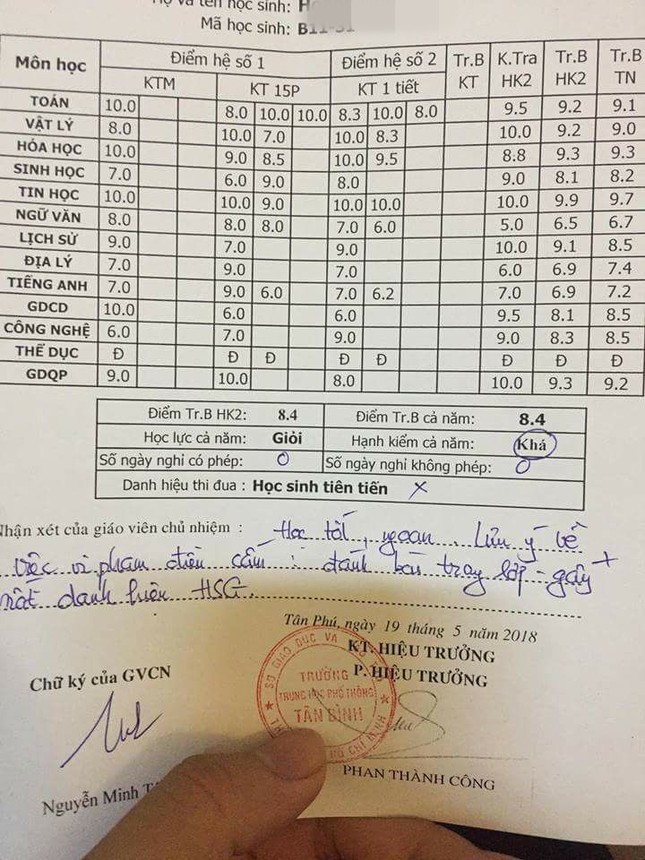 Họ và tên học sinh: H
Mã học sinh: B11-31
Môn học Điểm hệ số 1 Điểm hệ số 2 Tr.B KT K.Tra HK2 Tr.B HK2 Tr.B TN
KTM KT 15P KT 1 tiết
TOÁN 10.0 8.0 10.0 10.0 8.3 10.0 8.0 9.5 9.2 9.1
VẬT LÝ 8.0 10.0 7.0 10.0 8.3 10.0 9.2 9.0
HÓA HỌC 10.0 9.0 8.5 10.0 9.5 8.8 9.3 9.3
SINH HỌC 7.0 6.0 9.0 8.0 9.0 8.1 8.2
TIN HỌC 10.0 10.0 9.0 10.0 10.0 10.0 9.9 9.7
NGỮ VĂN 8.0 8.0 8.0 7.0 6.0 5.0 6.5 6.7
LỊCH SỬ 9.0 7.0 9.0 10.0 9.1 8.5
ĐỊA LÝ 7.0 9.0 7.0 6.0 6.9 7.4
TIẾNG ANH 7.0 9.0 6.0 7.0 6.2 7.0 6.9 7.2
GDCD 10.0 6.0 6.0 9.5 8.1 8.5
CÔNG NGHỆ 6.0 7.0 9.0 9.0 8.3 8.5
THỂ DỤC Đ Đ Đ Đ Đ Đ Đ Đ
GDQP 9.0 10.0 8.0 10.0 9.3 9.2
Điểm Tr.B HK2: 8.4 Điểm Tr.B cả năm: 8.4
Học lực cả năm: Giỏi Hạnh kiểm cả năm: Khá
Số ngày nghỉ có phép: 0 Số ngày nghỉ không phép: 0
Danh hiệu thi đua : Học sinh tiên tiến x
Nhận xét của giáo viên chủ nhiệm : Học tốt, ngoan. Lưu ý về
việc vi phạm điều cấm : đánh bài trong lớp gây
mất danh hiệu HSG.
Tân Phú, ngày 19 tháng 5 năm 2018
KT. HIỆU TRƯỞNG
P. HIỆU TRƯỞNG
Chữ ký của GVCN
SỞ GIÁO DỤC VÀ
TRƯỜNG
TRUNG HỌC PHỔ THÔNG
TÂN BÌNH
CHÍ MINH
PHAN THÀNH CÔNG
Nguyễn Minh